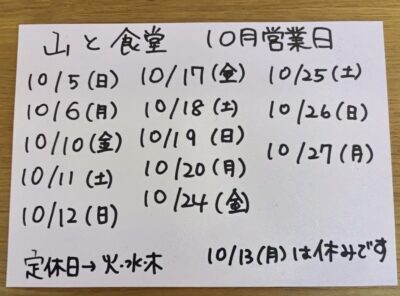 山と食堂 10月営業日
10/5(日)
10/6(月)
10/10(金)
10/11(土)
10/12(日)
10/17(金)
10/18(土)
10/19(日)
10/20(月)
10/24(金)
10/25(土)
10/26(日)
10/27(月)
定休日→火・水・木
10/13(月)は休みです